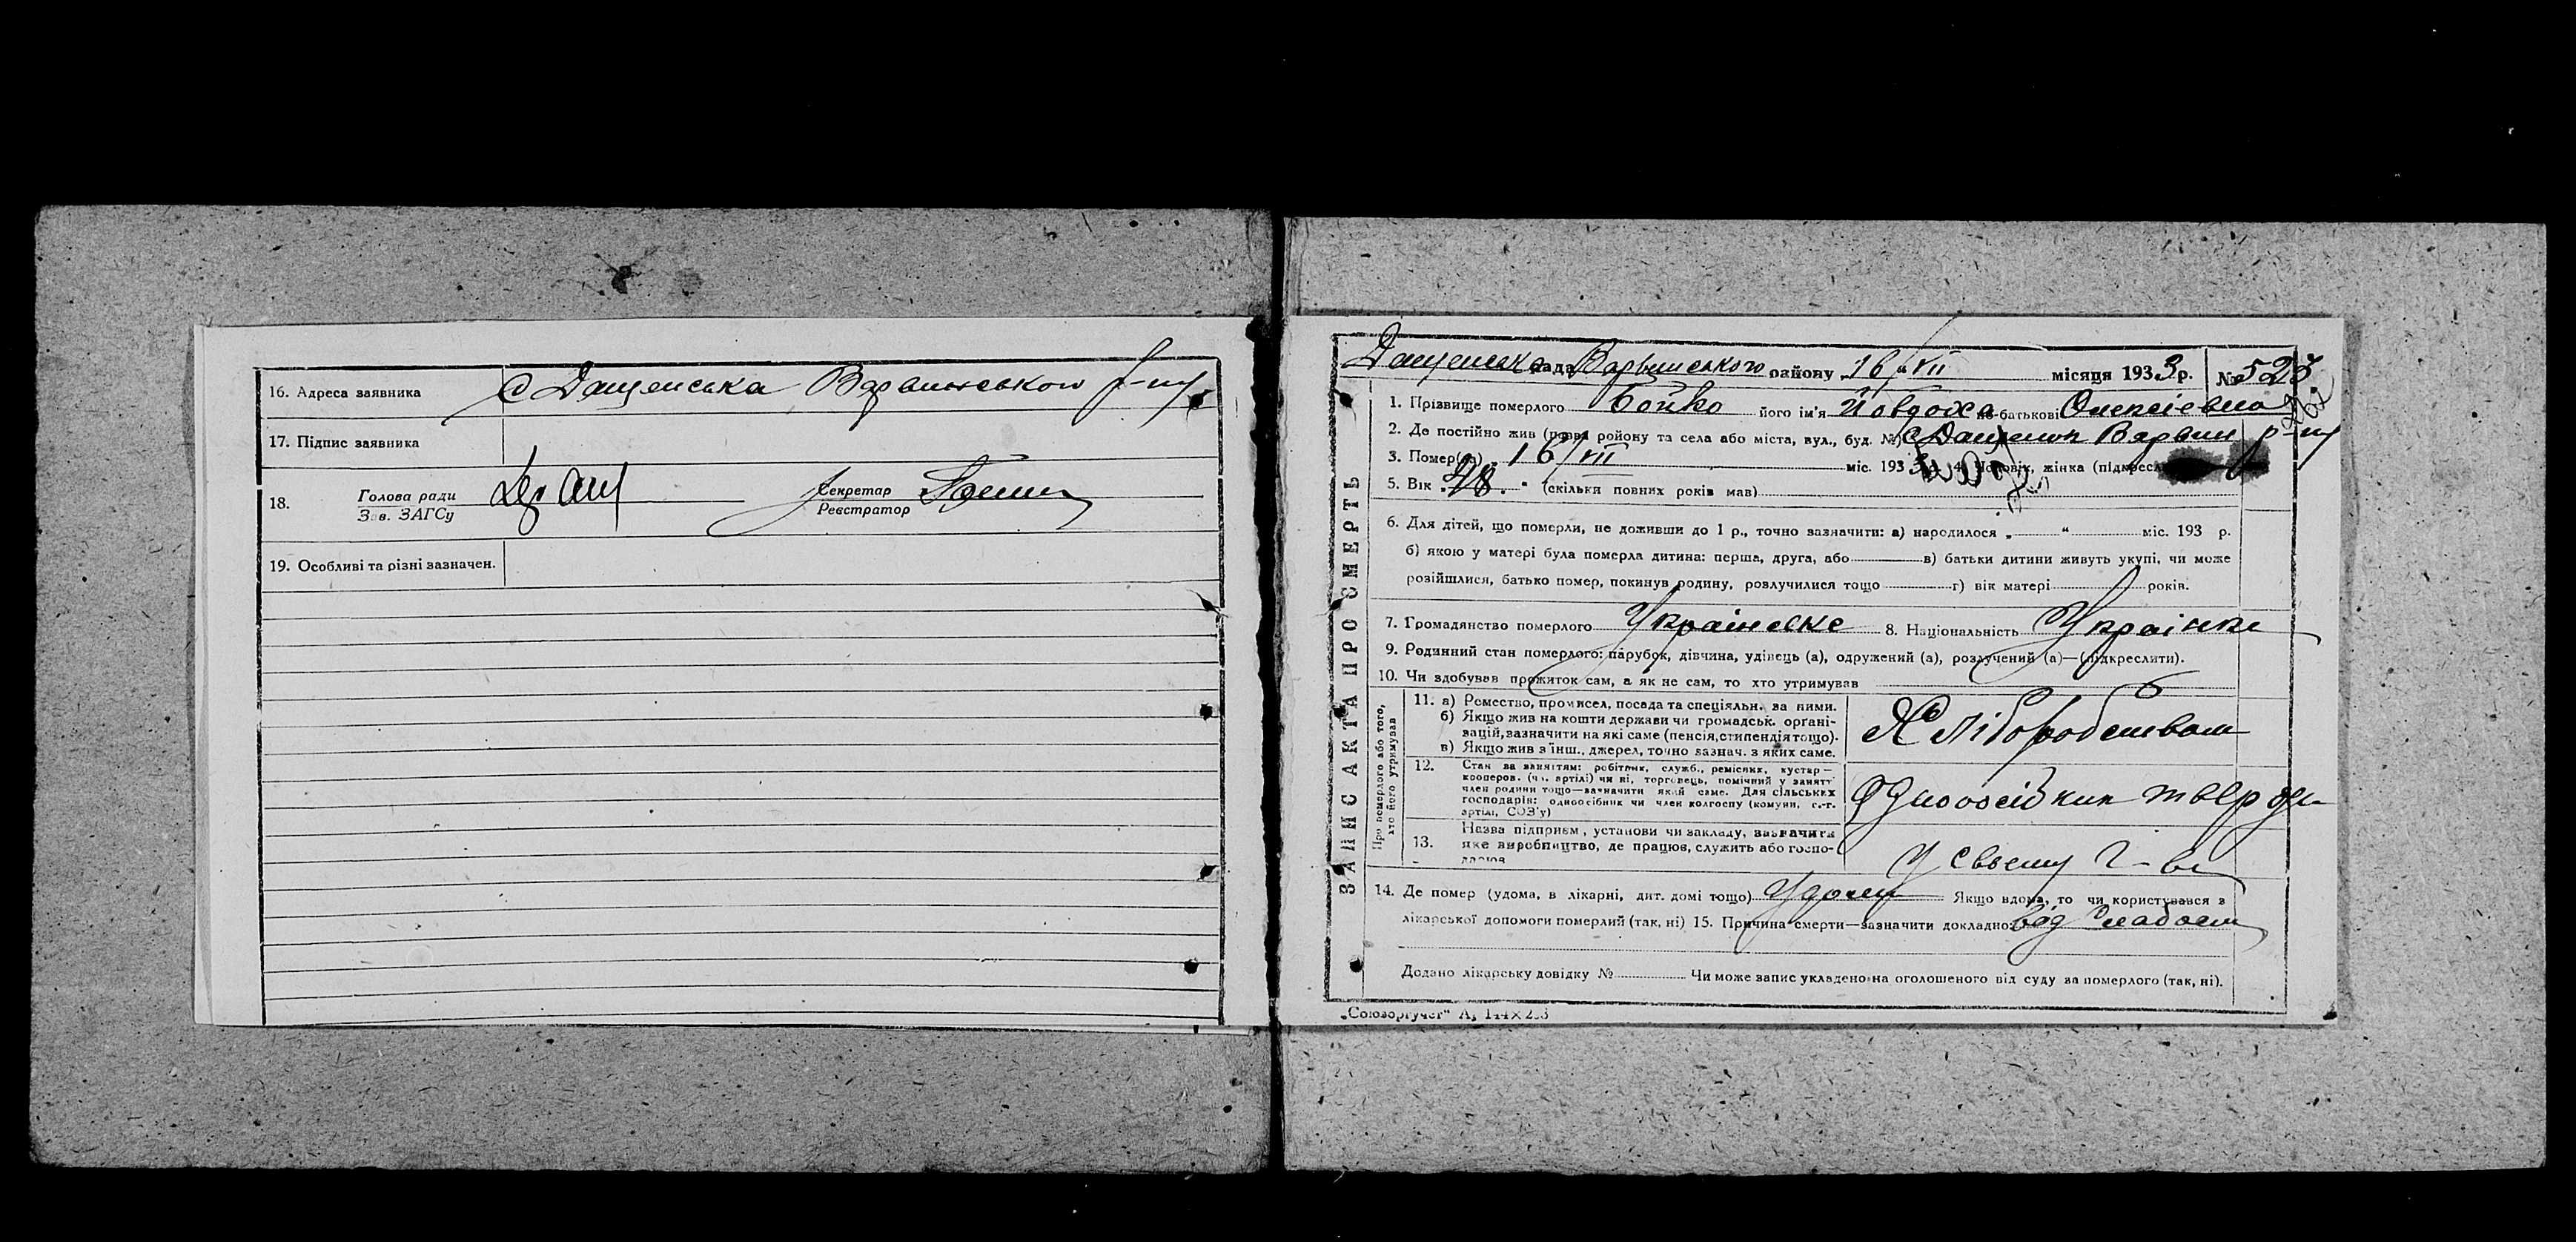 16. Адреса заявника с Дащенська Варвинського р-ну
17. Підпис заявника
18. Голова ради
Зав. ЗАГСу
Секретар
Реєстратор
19. Особливі та різні зазначен.
ЗАПИС АКТА ПРО СМЕРТЬ
Дащенська рада Варвинського району 16/VII місяця 1933 р. № 523
1. Прізвище померлого Бойко його ім'я Йовдоха по-батькові Олексієвна
2. Де постійно жив (назва ройону та села або міста, вул., буд. №) с Дащенки Варвин р-ну
3. Помер(ла) 16/VII міс. 1933 р. 4. Чоловік, жінка (підкресл
5. Вік 28 (скільки повних років мав)
6. Для дітей, що померли, не доживши до 1 р., точно зазначити: а) народилося „ “ міс. 193 р.
б) якою у матері була померла дитина: перша, друга, або в) батьки дитини живуть укупі, чи може
розійшлися, батько помер, покинув родину, розлучилися тощо г) вік матері років.
7. Громадянство померлого Українське 8. Національність Українка
9. Родинний стан померлого: парубок, дівчина, удівець (а), одружений (а), розлучений (а)—(підкреслити).
10. Чи здобував прожиток сам, а як не сам, то хто утримував
Про померлого або того,
хто його утримував
11. а) Ремество, промисел, посада та спеціяльн. за ними.
б) Якщо жив на кошти держави чи громадськ. органі-
зацій, зазначити на які саме (пенсія, стипендія тощо).
в) Якщо жив з інш. джерел, точно зазнач. з яких саме.
Хліборобством
12. Стан за заняттям: робітник, служб., ремісник, кустар—
кооперов. (чл. артілі) чи ні, торговець, помічний у занятт
член родини тощо—зазначити який саме. Для сільських
господарів: одноосібник чи член колгоспу (комуни, с.-г.
артілі, СОЗ'у)
Одноосібник твердо
13. Назва підприєм., установи чи закладу, зазначити
яке виробництво, де працює, служить або госпо-
дарює
У своєму г-ві
14. Де помер (удома, в лікарні, дит. домі тощо) Удома Якщо вдома, то чи користувався з
лікарської допомоги померлий (так, ні) 15. Причина смерти—зазначити докладно від слабости
Додано лікарську довідку № Чи може запис укладено на оголошеного від суду за померлого (так, ні).
„Союзоргучет“